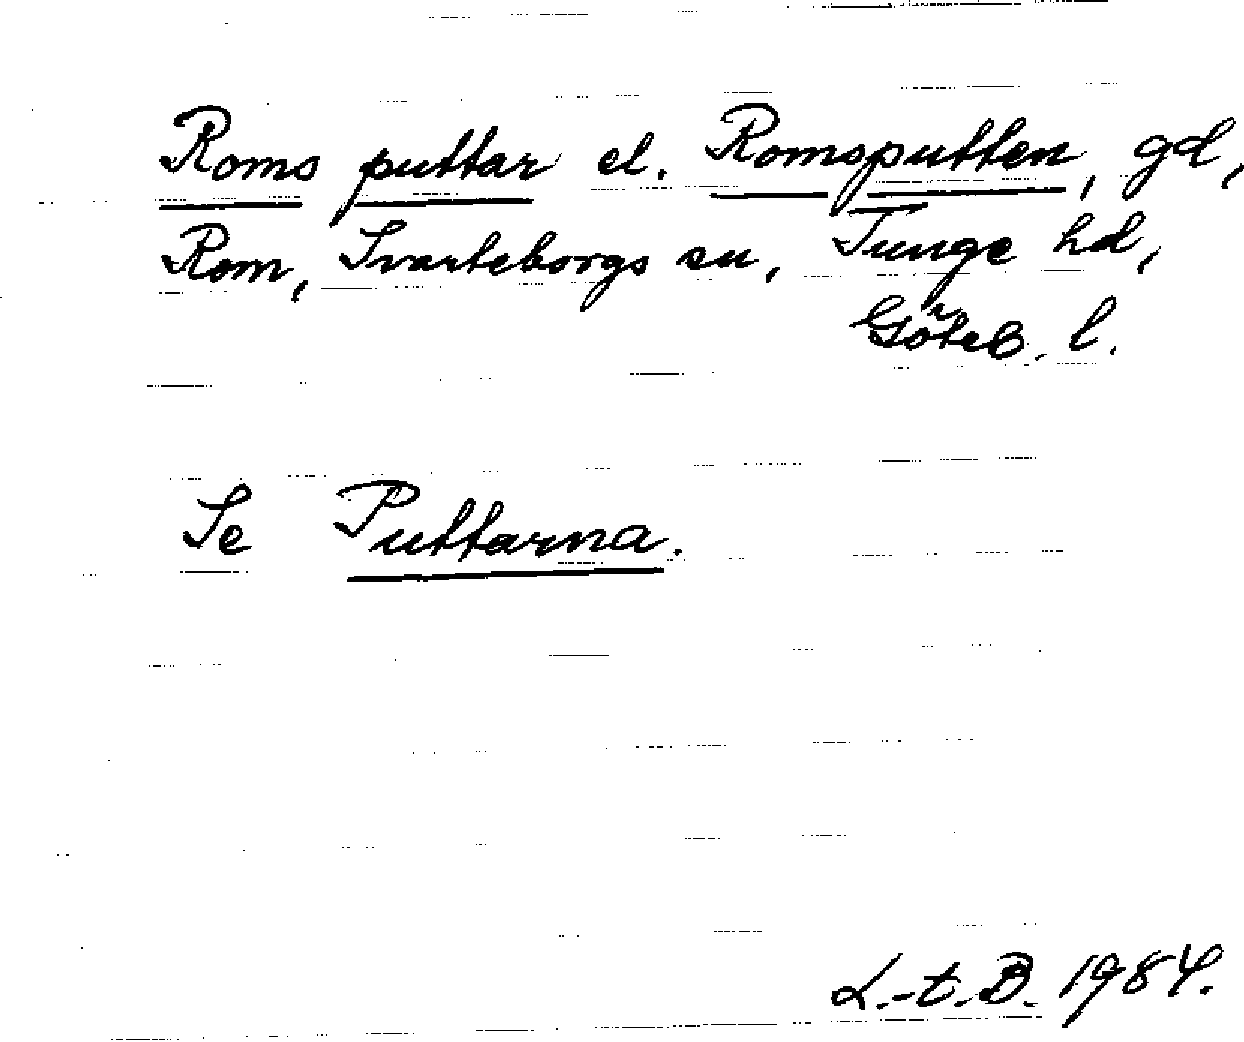 Roms puttar el. Romsputten, gd,
Rom, Svarteborgs sn, Tunge hd,
Göteb. l.
Se Puttarna.
L.-t. B. 1984.